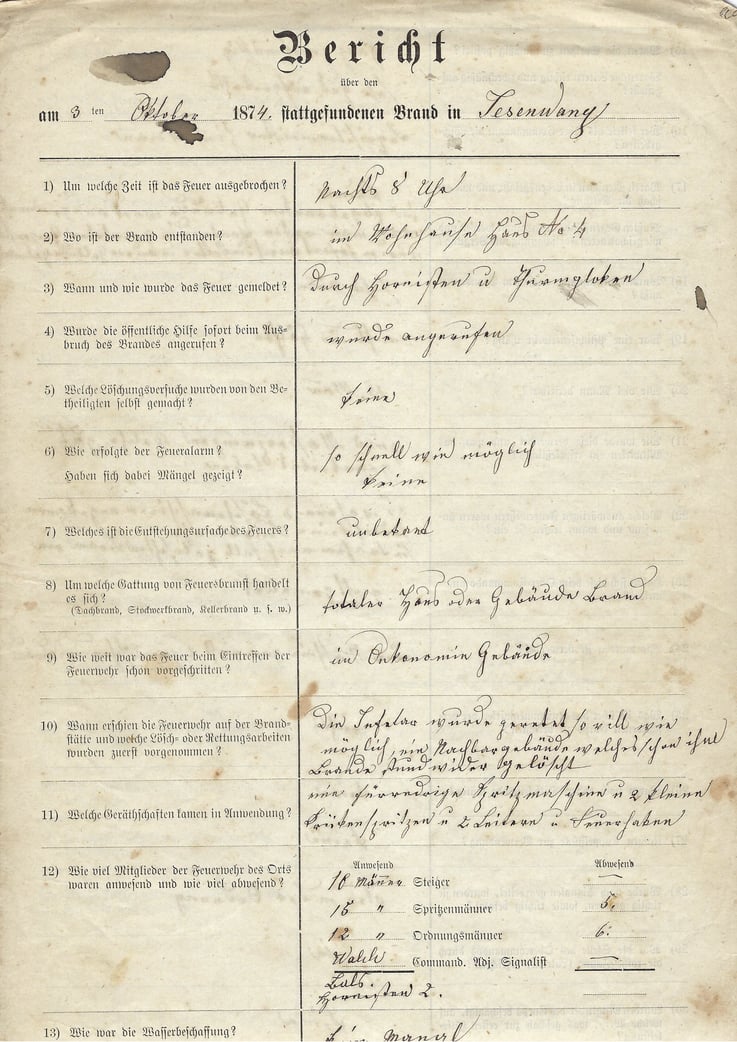 Bericht
über den
am 3 ten Oktober 1874. stattgefundenen Brand in Jesenwang
1) Um welche Zeit ist das Feuer ausgebrochen?
Nachts 8 Uhr
2) Wo ist der Brand entstanden?
im Wohnhause Haus No 4
3) Wann und wie wurde das Feuer gemeldet?
durch Hornisten u Thurmgloken
4) Wurde die öffentliche Hilfe sofort beim Aus-
bruch des Brandes angerufen?
wurde angerufen
5) Welche Löschungsversuche wurden von den Be-
theiligten selbst gemacht?
keine
6) Wie erfolgte der Feueralarm?
Haben sich dabei Mängel gezeigt?
so schnell wie möglich
keine
7) Welches ist die Entstehungsursache des Feuers?
unbekant
8) Um welche Gattung von Feuersbrunst handelt
es sich?
(Dachbrand, Stockwerkbrand, Kellerbrand u. s. w.)
totaler Haus oder Gebäude Brand
9) Wie weit war das Feuer beim Eintreffen der
Feuerwehr schon vorgeschritten?
im Oekonomie Gebäude
10) Wann erschien die Feuerwehr auf der Brand-
stätte und welche Lösch- oder Rettungsarbeiten
wurden zuerst vorgenommen?
Die wurde geretet so vill wie
möglich, ein Nachbargebäude welches schon
Brande stund wider gelöscht
11) Welche Geräthschaften kamen in Anwendung?
eine Spritzmaschine u 2 kleine
Krükenspritzen u 2 Leitern u Feuerhaken
12) Wie viel Mitglieder der Feuerwehr des Orts
waren anwesend und wie viel abwesend?
Anwesend Abwesend
18 Männer Steiger —
15 " Spritzenmänner 5.
12 " Ordnungsmänner 6.
Walch Command. Adj. Signalist —
Hornisten 2.
13) Wie war die Wasserbeschaffung?
kein Mangl